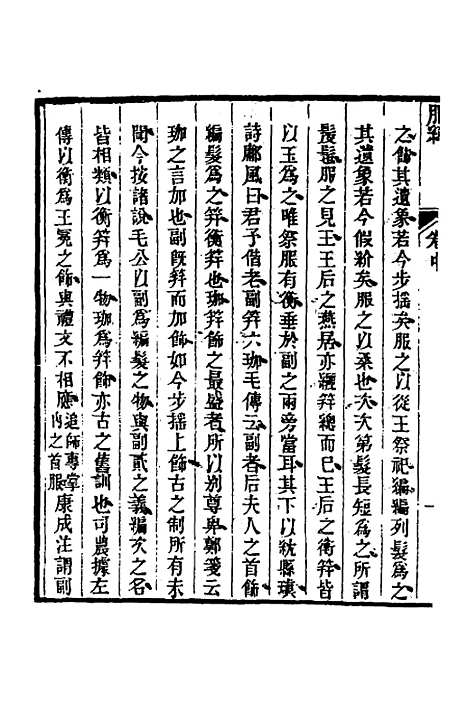 之飾其遺象若今步搖矣服之以從王祭祀編編列髮爲之
其遺象若今假紒矣服之以桑也次次第髮長短爲之所謂
髲髢服之見王王后之燕居亦纚筓總而已王后之衡筓皆
以玉爲之唯祭服有衡垂於副之兩旁當耳其下以紞縣瑱
詩鄘風曰君子偕老副筓六珈毛傳云副者后夫人之首飾
編髮爲之筓衡筓也珈筓飾之最盛者所以別尊卑鄭箋云
珈之言加也副旣筓而加飾如今步搖上飾古之制所有未
聞今按諸說毛公以副爲編髮之物與副貳之義編次之名
皆相類以衡筓爲一物珈爲筓飾亦古之舊訓也司農據左
傳以衡爲王冕之飾與禮文不相應追師專掌內之首服康成注謂副